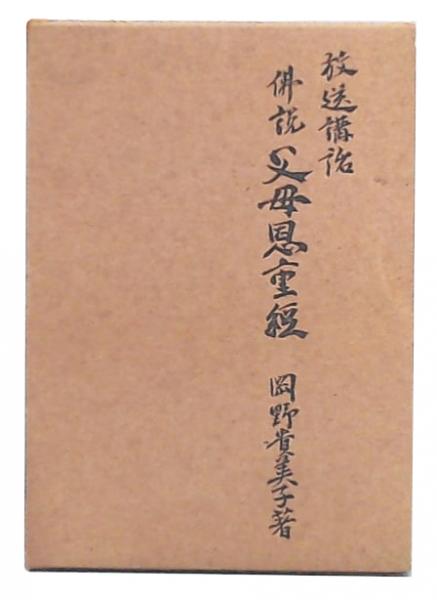 放送講話
佛説 父母恩重経 岡野貴美子著